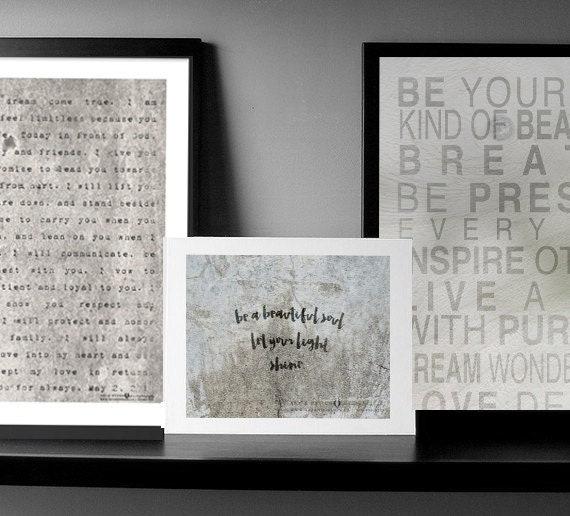 dream come true. I am
feel limitless because you
Today in front of God,
and friends. I give you
promise to dead you towar
from hurt. I will lift you
are down and stand beside
to carry you when you
and lean on you when I
I will communicate, be
with you. I vow to
patient and loyal to you.
show you respect and
I will protect and honor
family. I will always
love into my heart and
kept my love in return
for always. May 2, 2
be a beautiful soul
let your light
shine
BE YOUR
KIND OF BEA
BREAT
BE PRES
EVERY
INSPIRE OT
LIVE A
WITH PUR
DREAM WONDE
LOVE DE